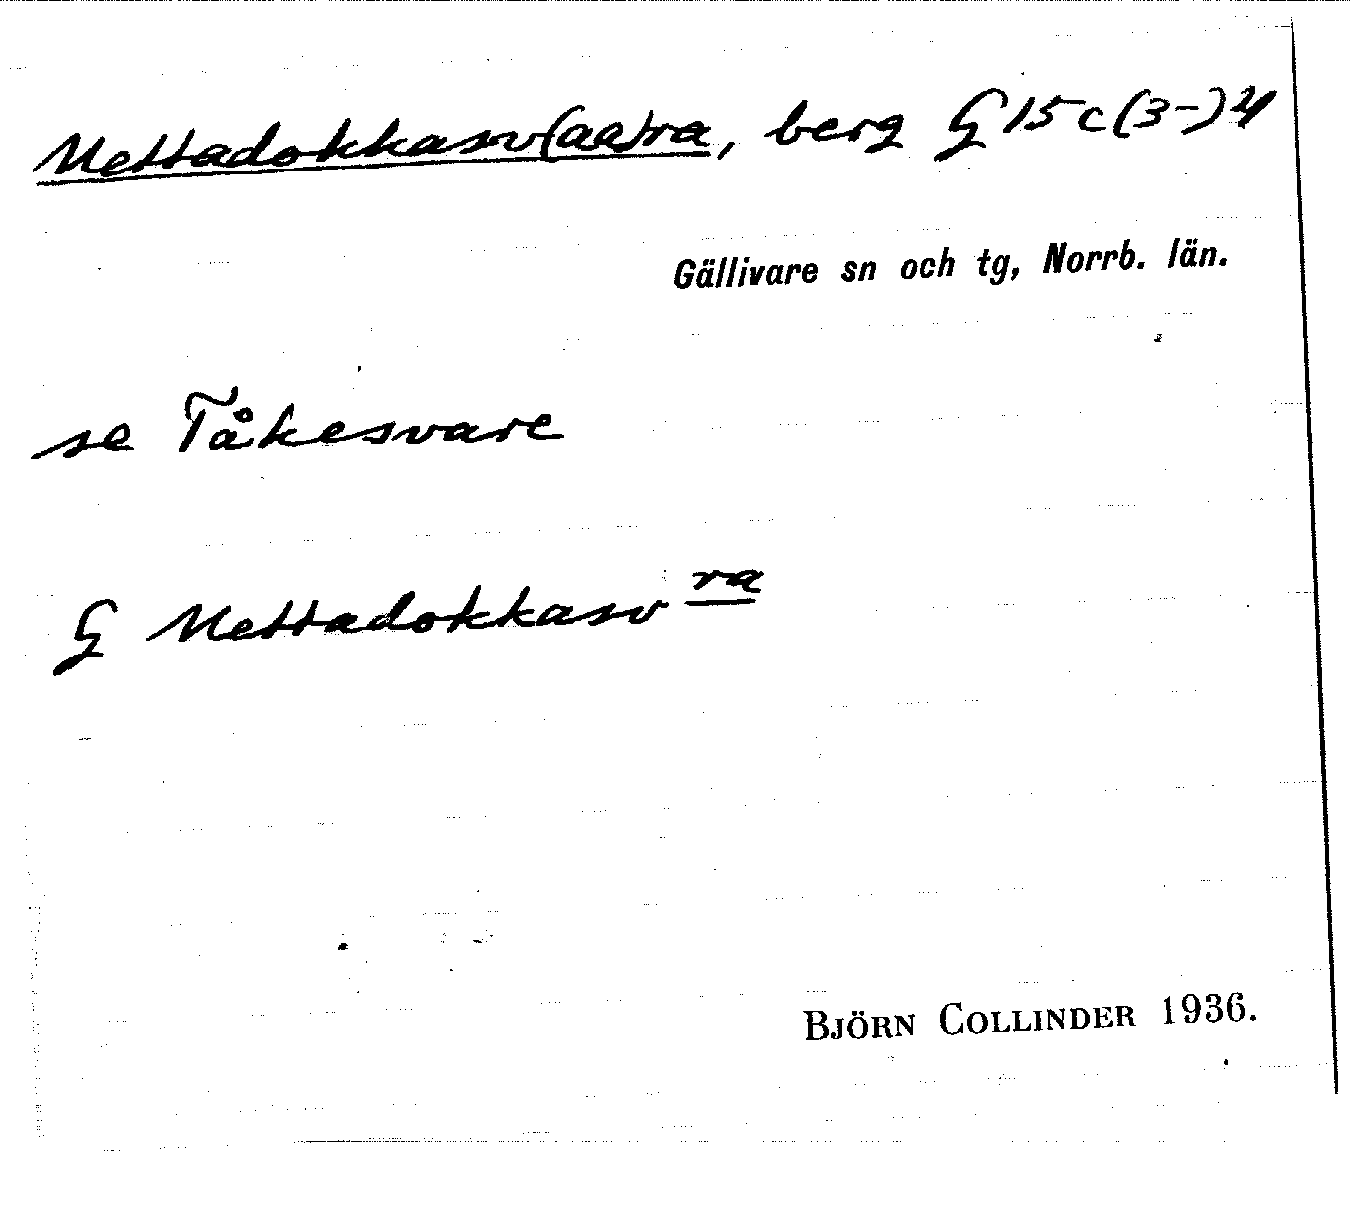 Mettadokkasv(aa)ra, berg G 15 c (3-) 4
Gällivare sn och tg, Norrb. län.
se Tåkesvare
G Mettadokkasv ra
BJÖRN COLLINDER 1936.